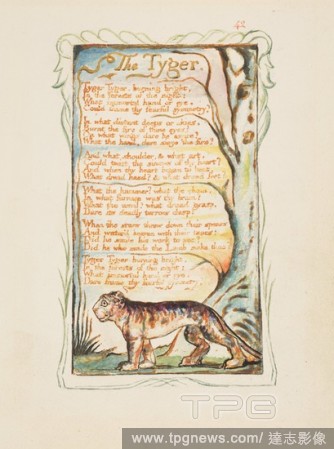 42
The Tyger.
Tyger Tyger, burning bright,
In the forests of the night;
What immortal hand or eye,
Could frame thy fearful symmetry?
In what distant deeps or skies,
Burnt the fire of thine eyes?
On what wings dare he aspire?
What the hand, dare sieze the fire?
And what shoulder, & what art,
Could twist the sinews of thy heart?
And when thy heart began to beat,
What dread hand? & what dread feet?
What the hammer? what the chain,
In what furnace was thy brain?
What the anvil? what dread grasp,
Dare its deadly terrors clasp!
When the stars threw down their spears
And water'd heaven with their tears:
Did he smile his work to see?
Did he who made the Lamb make thee?
Tyger Tyger burning bright,
In the forests of the night:
What immortal hand or eye,
Dare frame thy fearful symmetry?
TPG
www.tpgnews.com / 達志影像